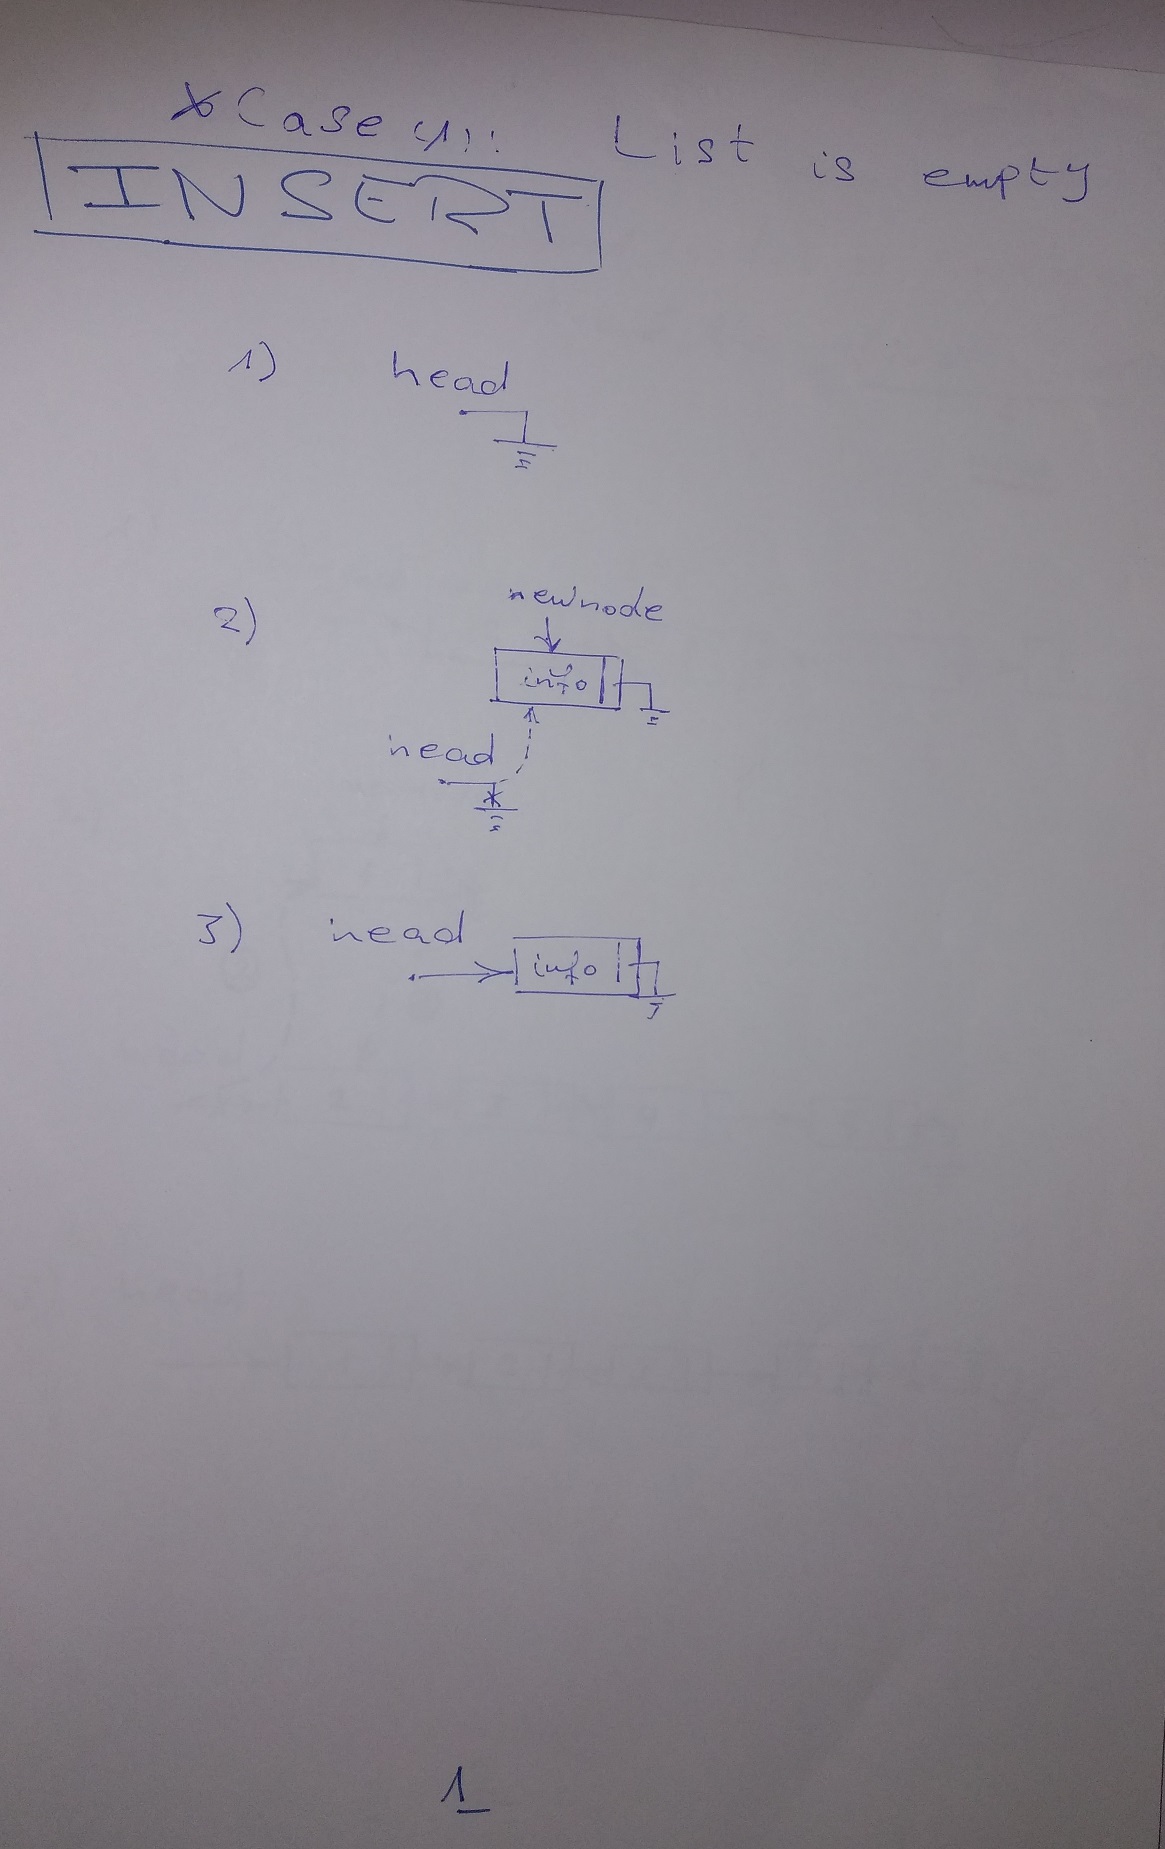 * Case (1): List is empty
INSERT
1) head
2) newnode
info
head
3) head
info
1